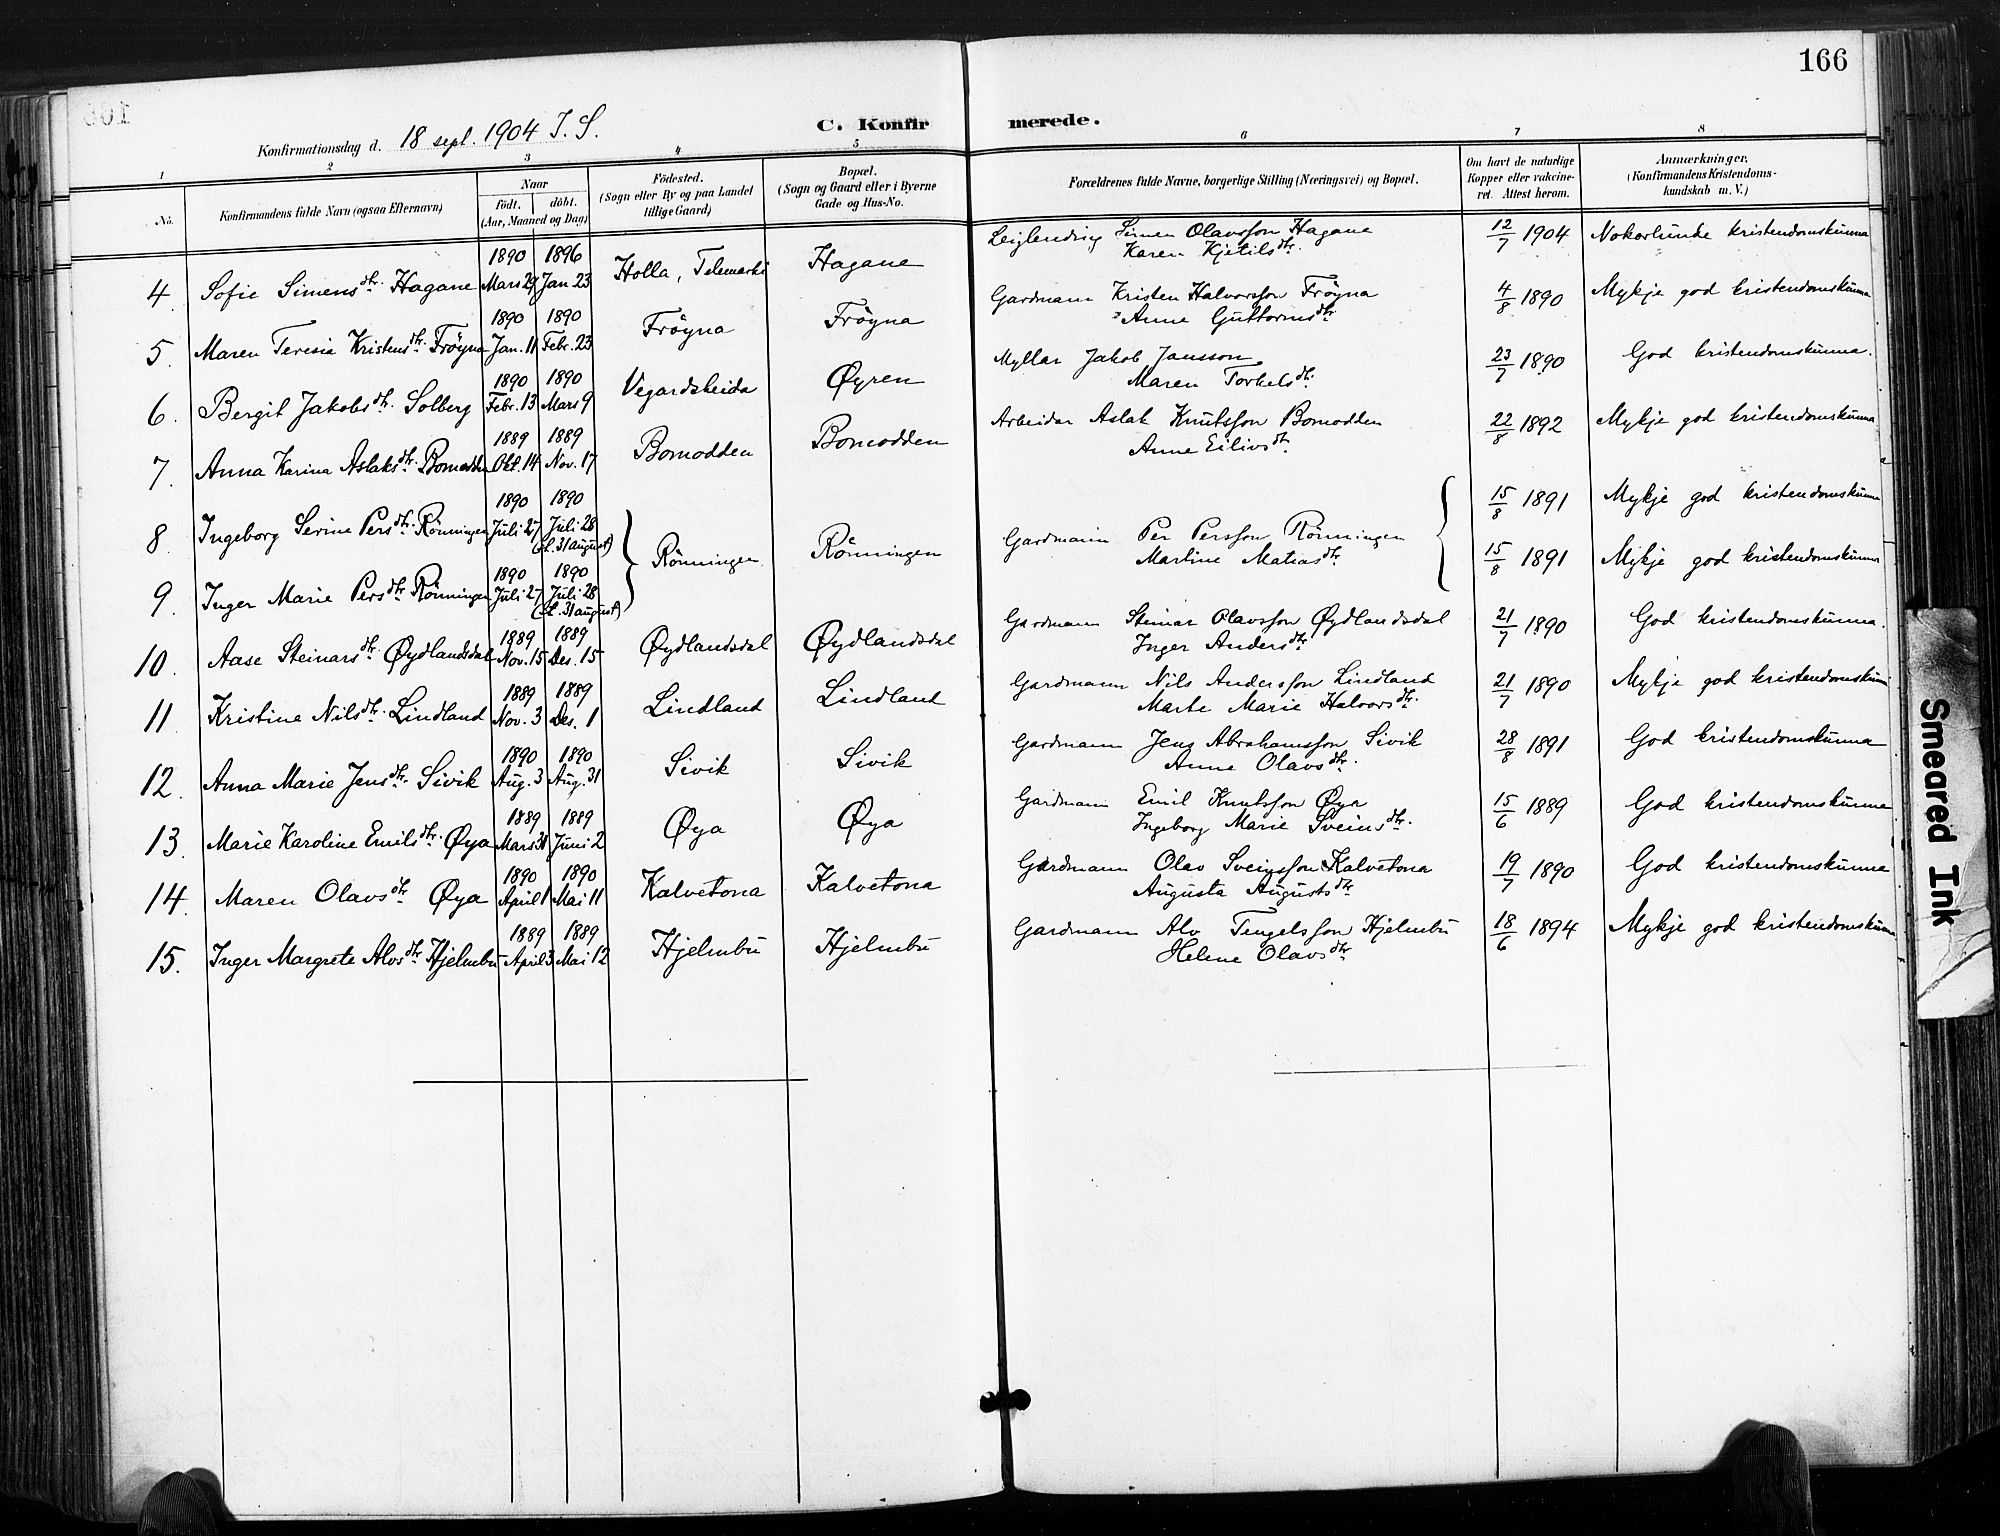 166
Konfirmationsdag d. 18 sept. 1904 I. S.
C. Konfirmerede.
1 2 3 4 5 6 7 8
No.
Konfirmandens fulde Navn (ogsaa Efternavn)
Naar
Født. døbt.
(Aar, Maaned og Dag)
Födested.
(Sogn eller By og paa Landet
tillige Gaard)
Bopæl.
(Sogn og Gaard eller i Byerne
Gade og Hus-No.
Forældrenes fulde Navne, borgerlige Stilling (Næringsvei) og Bopæl.
Om havt de naturlige
Kopper eller vakcine-
ret. Attest herom.
Anmærkninger.
(Konfirmandens Kristendoms-
kundskab m. V.)
1890 1896
4. Sofie Simensdtr. Hagane Mars 29 Jan 23 Holla, Telemarki Hagane Leiglending Simen Olavsson Hagane 12/7 1904 Nokorlunde kristendomskunna
Karen Kjetilsdtr.
1890 1890
5. Maren Teresia Kristensdtr. Fröyna Jan. 11 Febr. 23 Fröyna Fröyna Gardmann Kristen Halvorsson Fröyna 4/8 1890 Mykje god kristendomskunna
Anne Guttormsdtr
1890 1890
6. Bergit Jakobsdtr. Solberg Febr. 13 Mars 9 Vegardsheida Øyren Myllar Jakob Jansson 23/7 1890 God kristendomskunna.
Maren Torkelsdtr.
1889 1889
7. Anna Karina Aslaksdtr. Bomodden Okt. 14 Nov. 17 Bomodden Bomodden Arbeidar Aslak Knutsson Bomodden 22/8 1892 Mykje god kristendomskunna
Anne Eilivsdtr.
1890 1890
8. Ingeborg Serine Persdtr. Rönningen Juli 27 Juli 28 Rönningen Rönningen Gardmann Per Persson Rönningen 15/8 1891 Mykje god kristendomskunna
(st. 31 august) Martine Matiasdtr.
1890 1890
9. Inger Marie Persdtr Rönningen Juli 27 Juli 28 15/8 1891 Mykje god kristendomskunna
(st. 31 august)
1889 1889
10. Aase Steinarsdtr. Øydlandsdal Nov. 15 Des. 15 Øydlandsdal Øydlandsdal Gardmann Steinar Olavsson Øydlandsdal 21/7 1890 God kristendomskunna.
Inger Andersdtr.
1889 1889
11. Kristine Nilsdtr. Lindland Nov. 3 Des. 1 Lindland Lindland Gardmann Nils Andersson Lindland 21/7 1890 Mykje god kristendomskunn
Marte Marie Halvorsdtr.
1890 1890
12. Anna Marie Jensdtr. Sivik Aug. 3 Aug. 31 Sivik Sivik Gardmann Jens Abrahamsson Sivik 28/8 1891 God kristendomskunna
Anne Olavsdtr.
1889 1889
13. Marie Karoline Emilsdtr. Øya Mars 31 Juni 2 Øya Øya Gardmann Emil Knutsson Øya 15/6 1889 God kristendomskunna
Ingeborg Marie Sveinsdtr.
1890 1890
14. Maren Olavsdtr Øya April 1 Mai 11 Kalvetona Kalvetona Gardmann Olav Sveinsson Kalvetona 19/7 1890 God kristendomskunna
Augusta Augustsdtr
1889 1889
15. Inger Margrete Alvsdtr. Hjelmbu April 3 Mai 12 Hjelmbu Hjelmbu Gardmann Alv Tengelsson Hjelmbu 18/6 1894 Mykje god kristendomskunna
Helene Olavsdtr
Smeared Ink